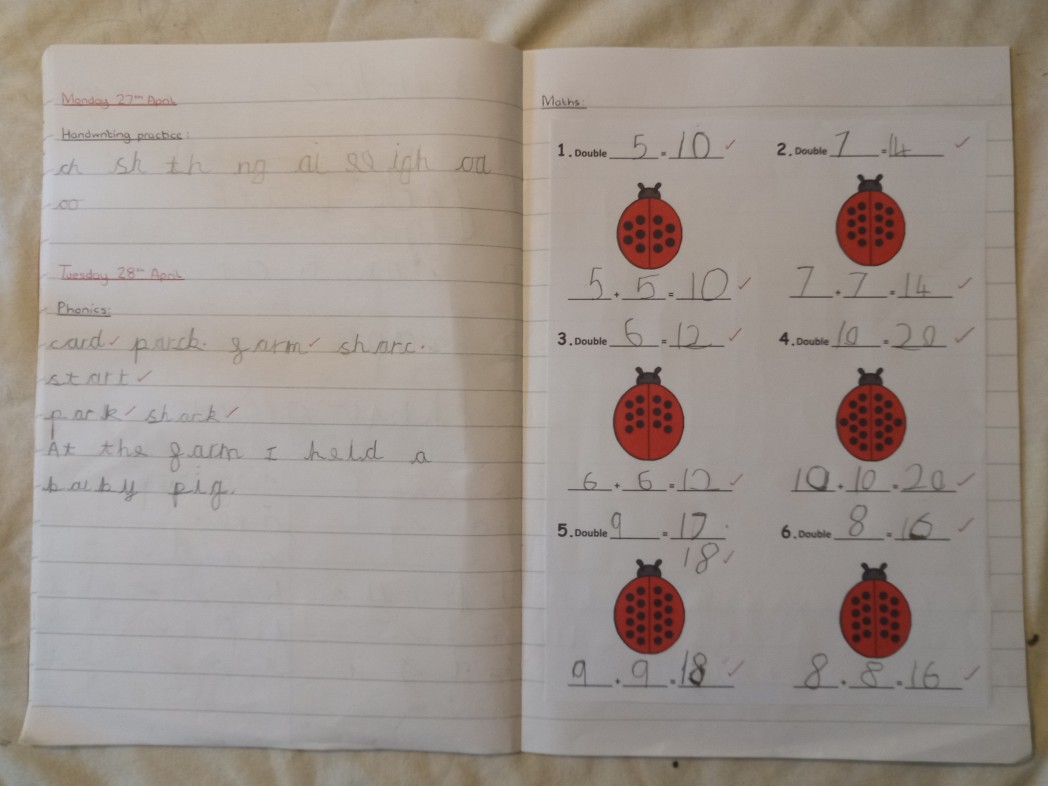 Monday 27th April
Handwriting practice:
ch sh th ng ai ee igh oa
oo
Tuesday 28th April
Phonics:
card parck farm sharc
start
park shark
At the farm I held a
baby pig.
Maths:
1. Double 5 = 10
5 + 5 = 10
2. Double 7 = 14
7 + 7 = 14
3. Double 6 = 12
6 + 6 = 12
4. Double 10 = 20
10 + 10 = 20
5. Double 9 = 17
18
9 + 9 = 18
6. Double 8 = 16
8 + 8 = 16